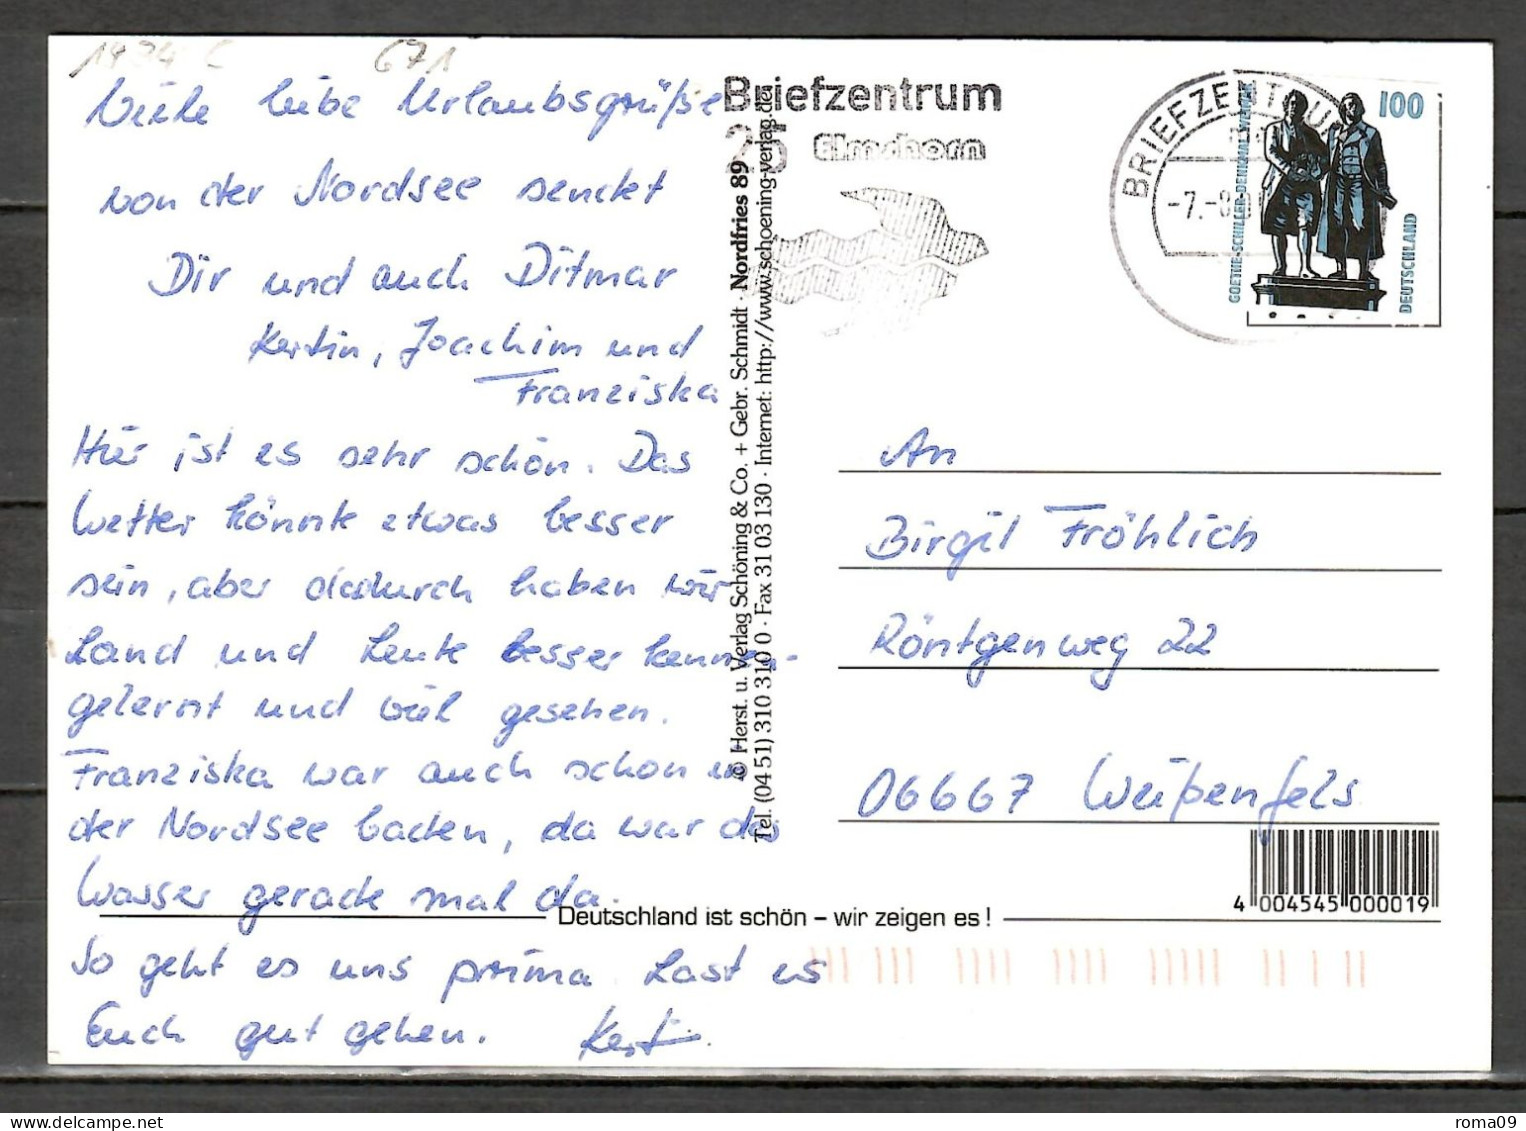 1934 C 671
Viele liebe Urlaubsgrüße
von der Nordsee sendet
Dir und auch Ditmar
Kerstin, Joachim und
Franziska
Hier ist es sehr schön. Das
Wetter könnte etwas besser
sein, aber dadurch haben wir
Land und Leute besser kennen-
gelernt und viel gesehen.
Franziska war auch schon in
der Nordsee baden, da war das
Wasser gerade mal da.
So geht es uns prima. Last es
Euch gut gehen. Kerstin.
© Herst. u. Verlag Schöning & Co. + Gebr. Schmidt · Nordfries 89
Tel. (04 51) 310 310 0 · Fax 31 03 130 · Internet: http://www.schoening-verlag.de
Briefzentrum
25 Elmshorn
BRIEFZENTRUM
-7.-8.0
100
GOETHE-SCHILLER-DENKMAL WEIMAR
DEUTSCHLAND
An
Birgit Fröhlich
Röntgenweg 22
06667 Weißenfels
4 004545 000019
Deutschland ist schön – wir zeigen es!
roma09